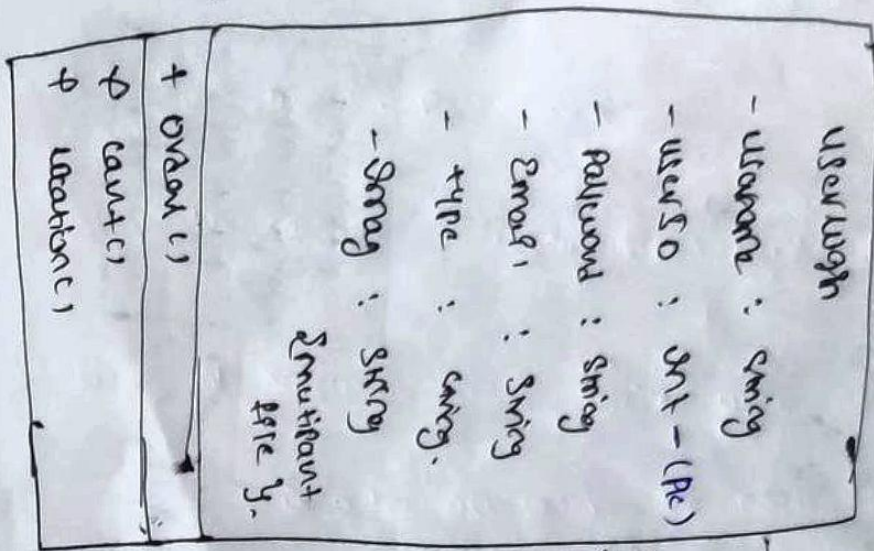 User Login
- username : string
- userID : Int - (PK)
- Password : String
- Email : String
- type : string.
- Image : String
{mutipart file}.
+ order()
+ cart()
+ location()